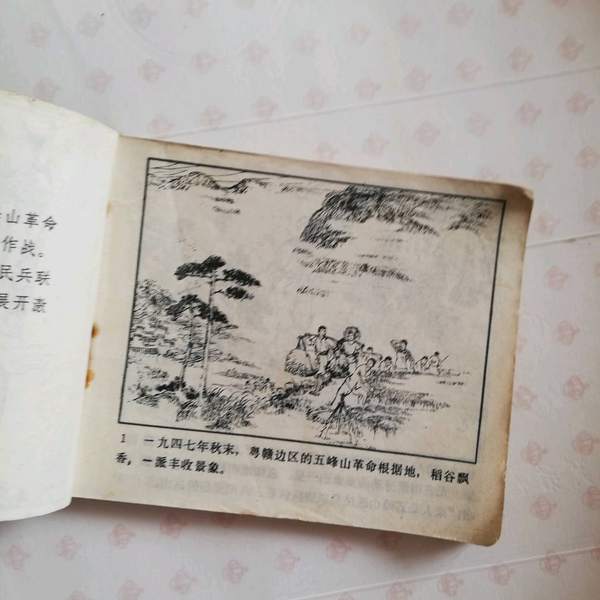 山革命
作战。
民兵联
展开激
1 一九四七年秋末，粤赣边区的五峰山革命根据地，稻谷飘
香，一派丰收景象。